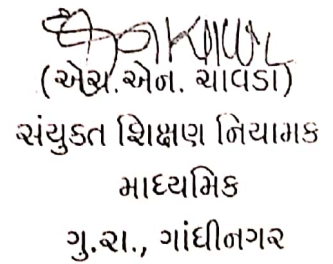 (એચ.એન. ચાવડા)
સંયુક્ત શિક્ષણ નિયામક
માધ્યમિક
ગુ.રા., ગાંધીનગર